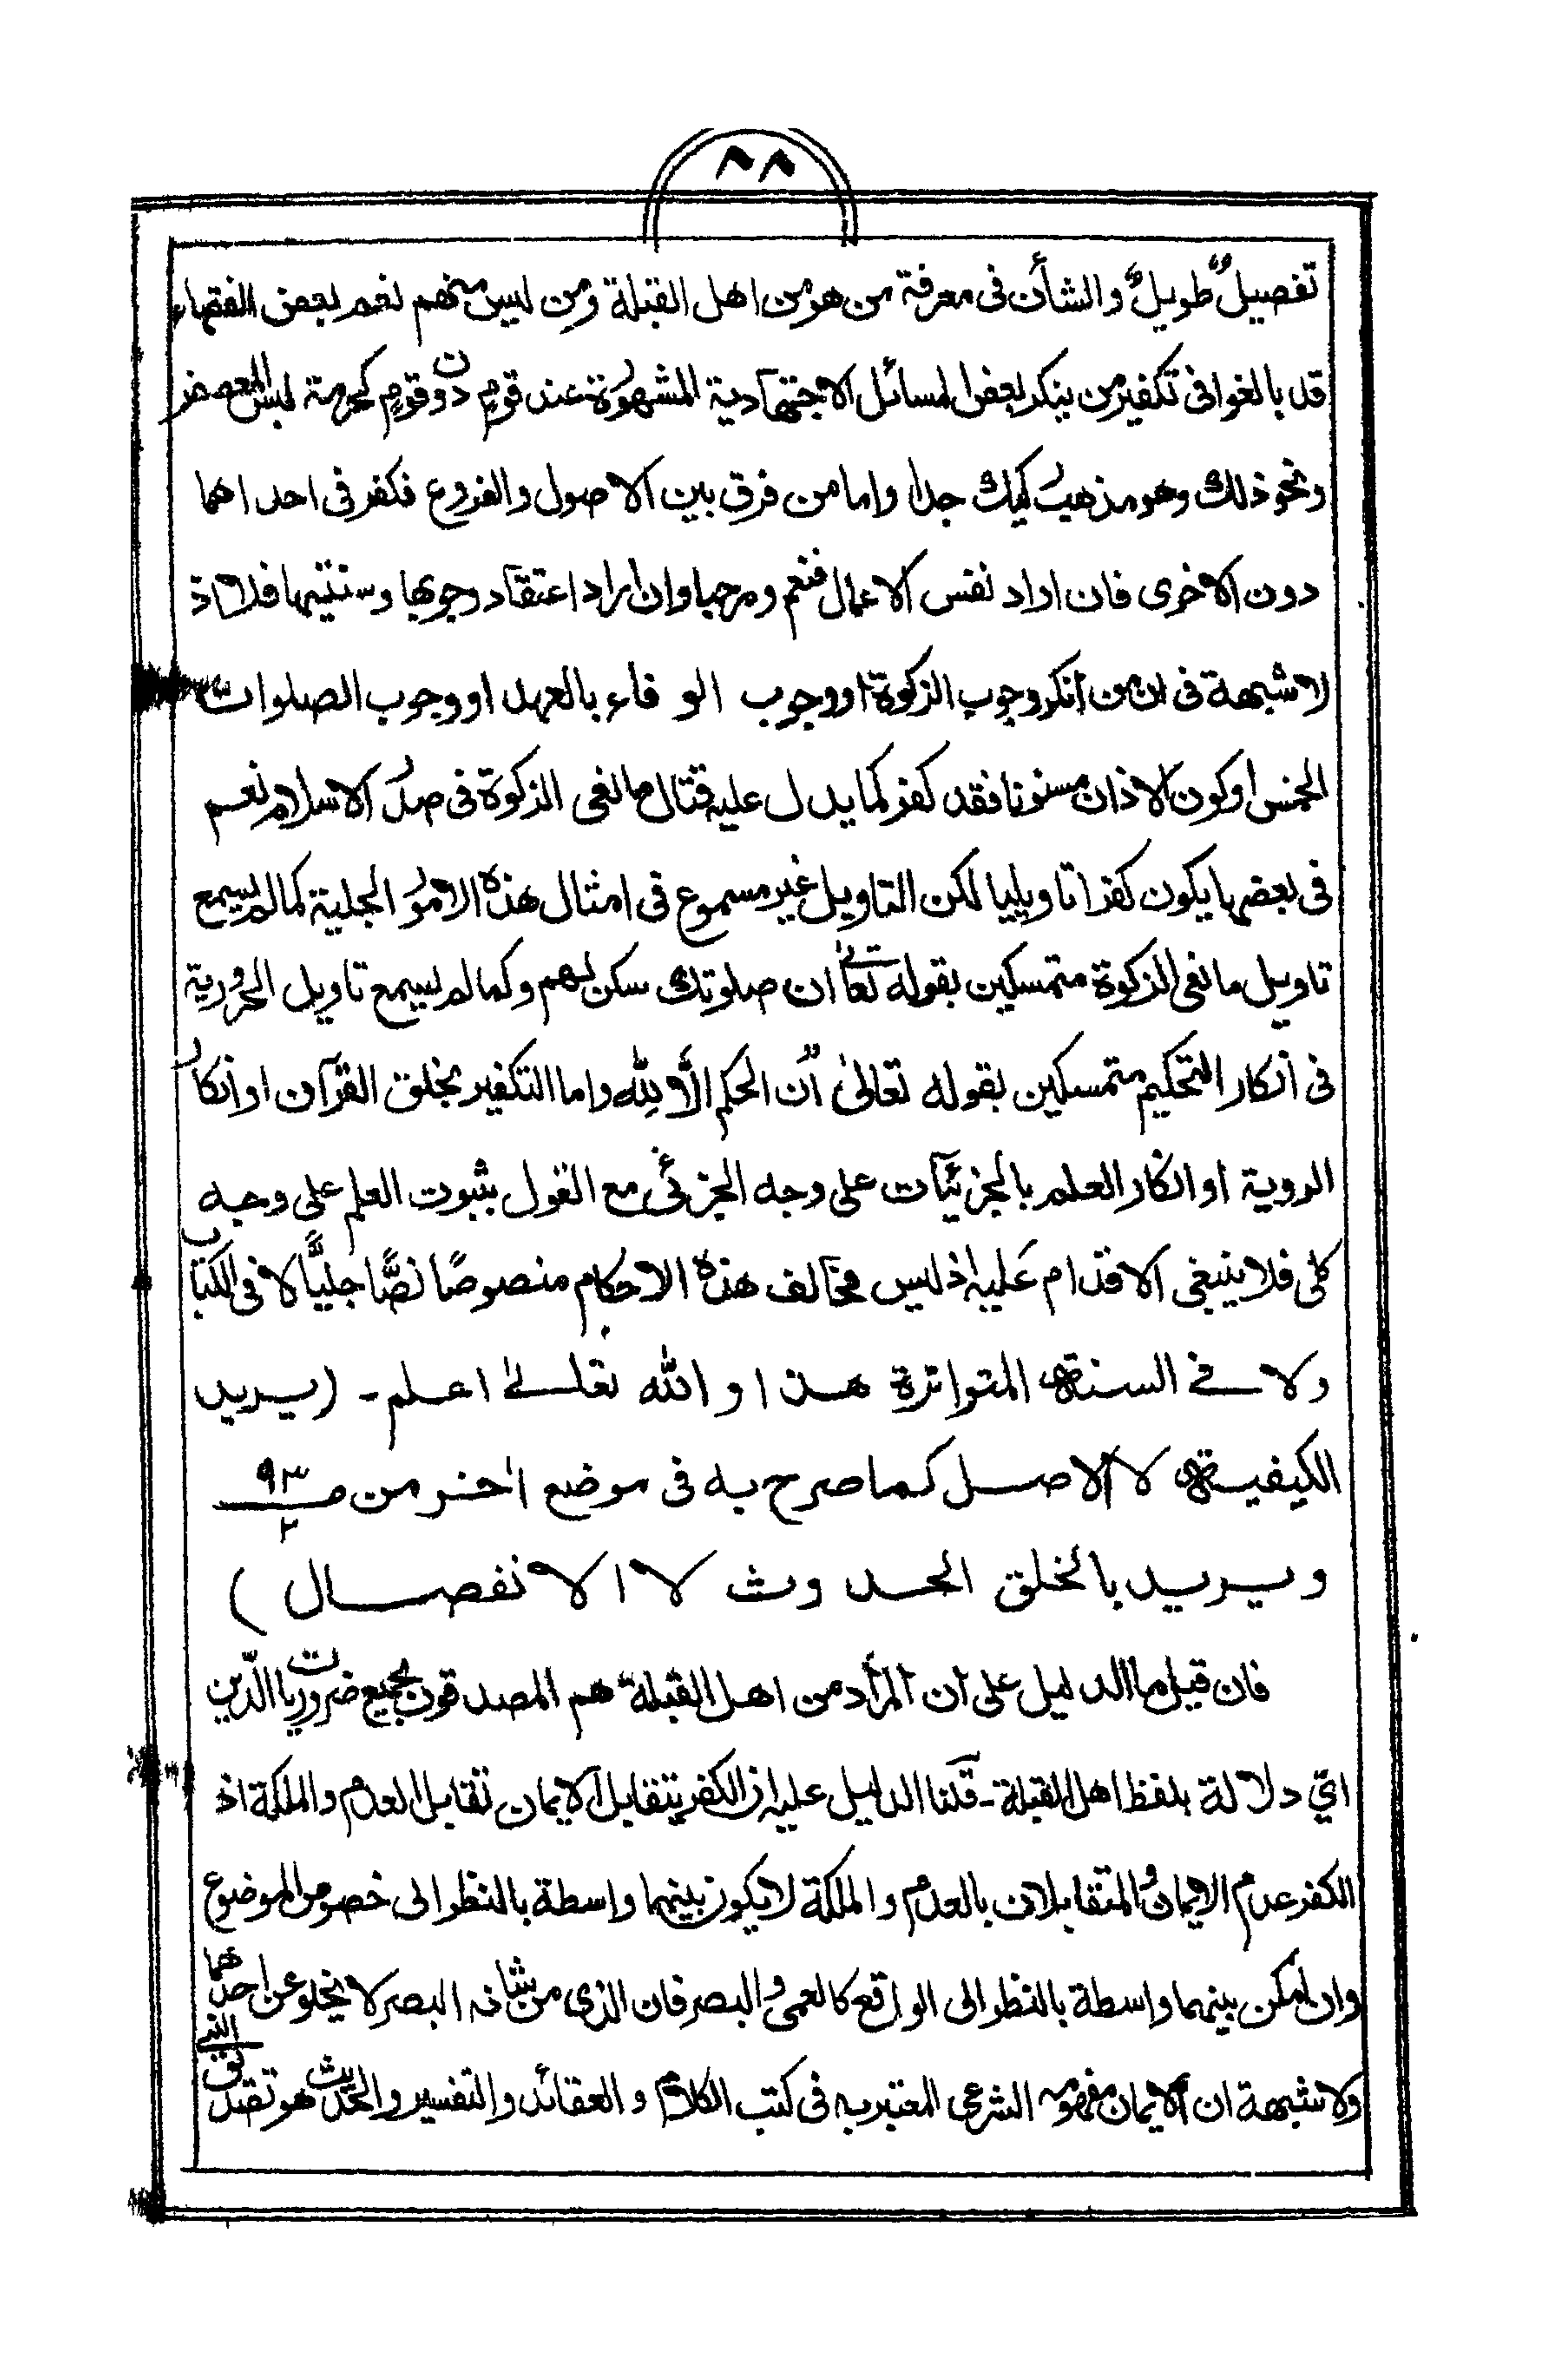 ٨٨
تفصيلٌ طويلٌ والشأن فى معرفة من هو من اهل القبلة ومن ليس منهم نعم لبعض الفقهاء
قد بالغوا فى تكفير من ينكر بعض المسائل الاجتهادية المشهورة عند قومٍ دون قومٍ كحرمة لبس المعصفر
ونحو ذلك وهو مذهب ركيك جدا واما من فرق بين الاصول والفروع فكفر فى احداهما
دون الاخرى فان اراد نفس الاعمال فنعم ومرحبا وان اراد اعتقاد وجوبها وسنيتها فلا اذ
لا شبهة فى ان من انكر وجوب الزكوة او وجوب الوفاء بالعهد او وجوب الصلوات
الخمس او كون الاذان مسنونا فقد كفر كما يدل عليه قتال مانعى الزكوة فى صدر الاسلام نعم
فى بعضها يكون كفرا تاويليا لكن التاويل غير مسموع فى امثال هذه الامور الجلية كما لم يسمع
تاويل مانعى الزكوة متمسكين بقوله تعالى ان صلوتك سكن لهم وكما لم يسمع تاويل الحرورية
فى انكار التحكيم متمسكين بقوله تعالىٰ اِن الحكم اِلَّا لِلّٰه واما التكفير بخلق القرآن او انكار
الروية او انكار العلم بالجزئيات على وجه الجزئى مع القول بثبوت العلم على وجه
كلى فلا ينبغى الاقدام عليه اذ ليس مخالف هذه الاحكام منصوصًا نصًّا جليًّا لا فى الكتاب
ولا فے السنة المتواترة هذا والله تعالىٰ اعلم - (يريد
الكيفية لا الاصل كما صرح به فى موضع اٰخر من صـ ٩٣/٢
ويريد بالخلق الحدوث لا الانفصال)
فان قيل ما الدليل على ان المراد من اهل القبلة هم المصدقون بجميع ضروريات الدّين
اىّ دلالة بلفظ اهل القبلة - قلنا الدليل عليه ان الكفر يتقابل الايمان تقابل العدم والملكة اذ
الكفر عدم الايمان والمتقابلان بالعدم والملكة لا يكون بينهما واسطة بالنظر الى خصوص الموضوع
وان امكن بينهما واسطة بالنظر الى الواقع كالعمى والبصر فان الذى من شانه البصر لا يخلو عن احدهما
ولا شبهة ان الايمان مفهومه الشرعى المعتبر به فى كتب الكلام والعقائد والتفسير والحديث هو تصديق النبے